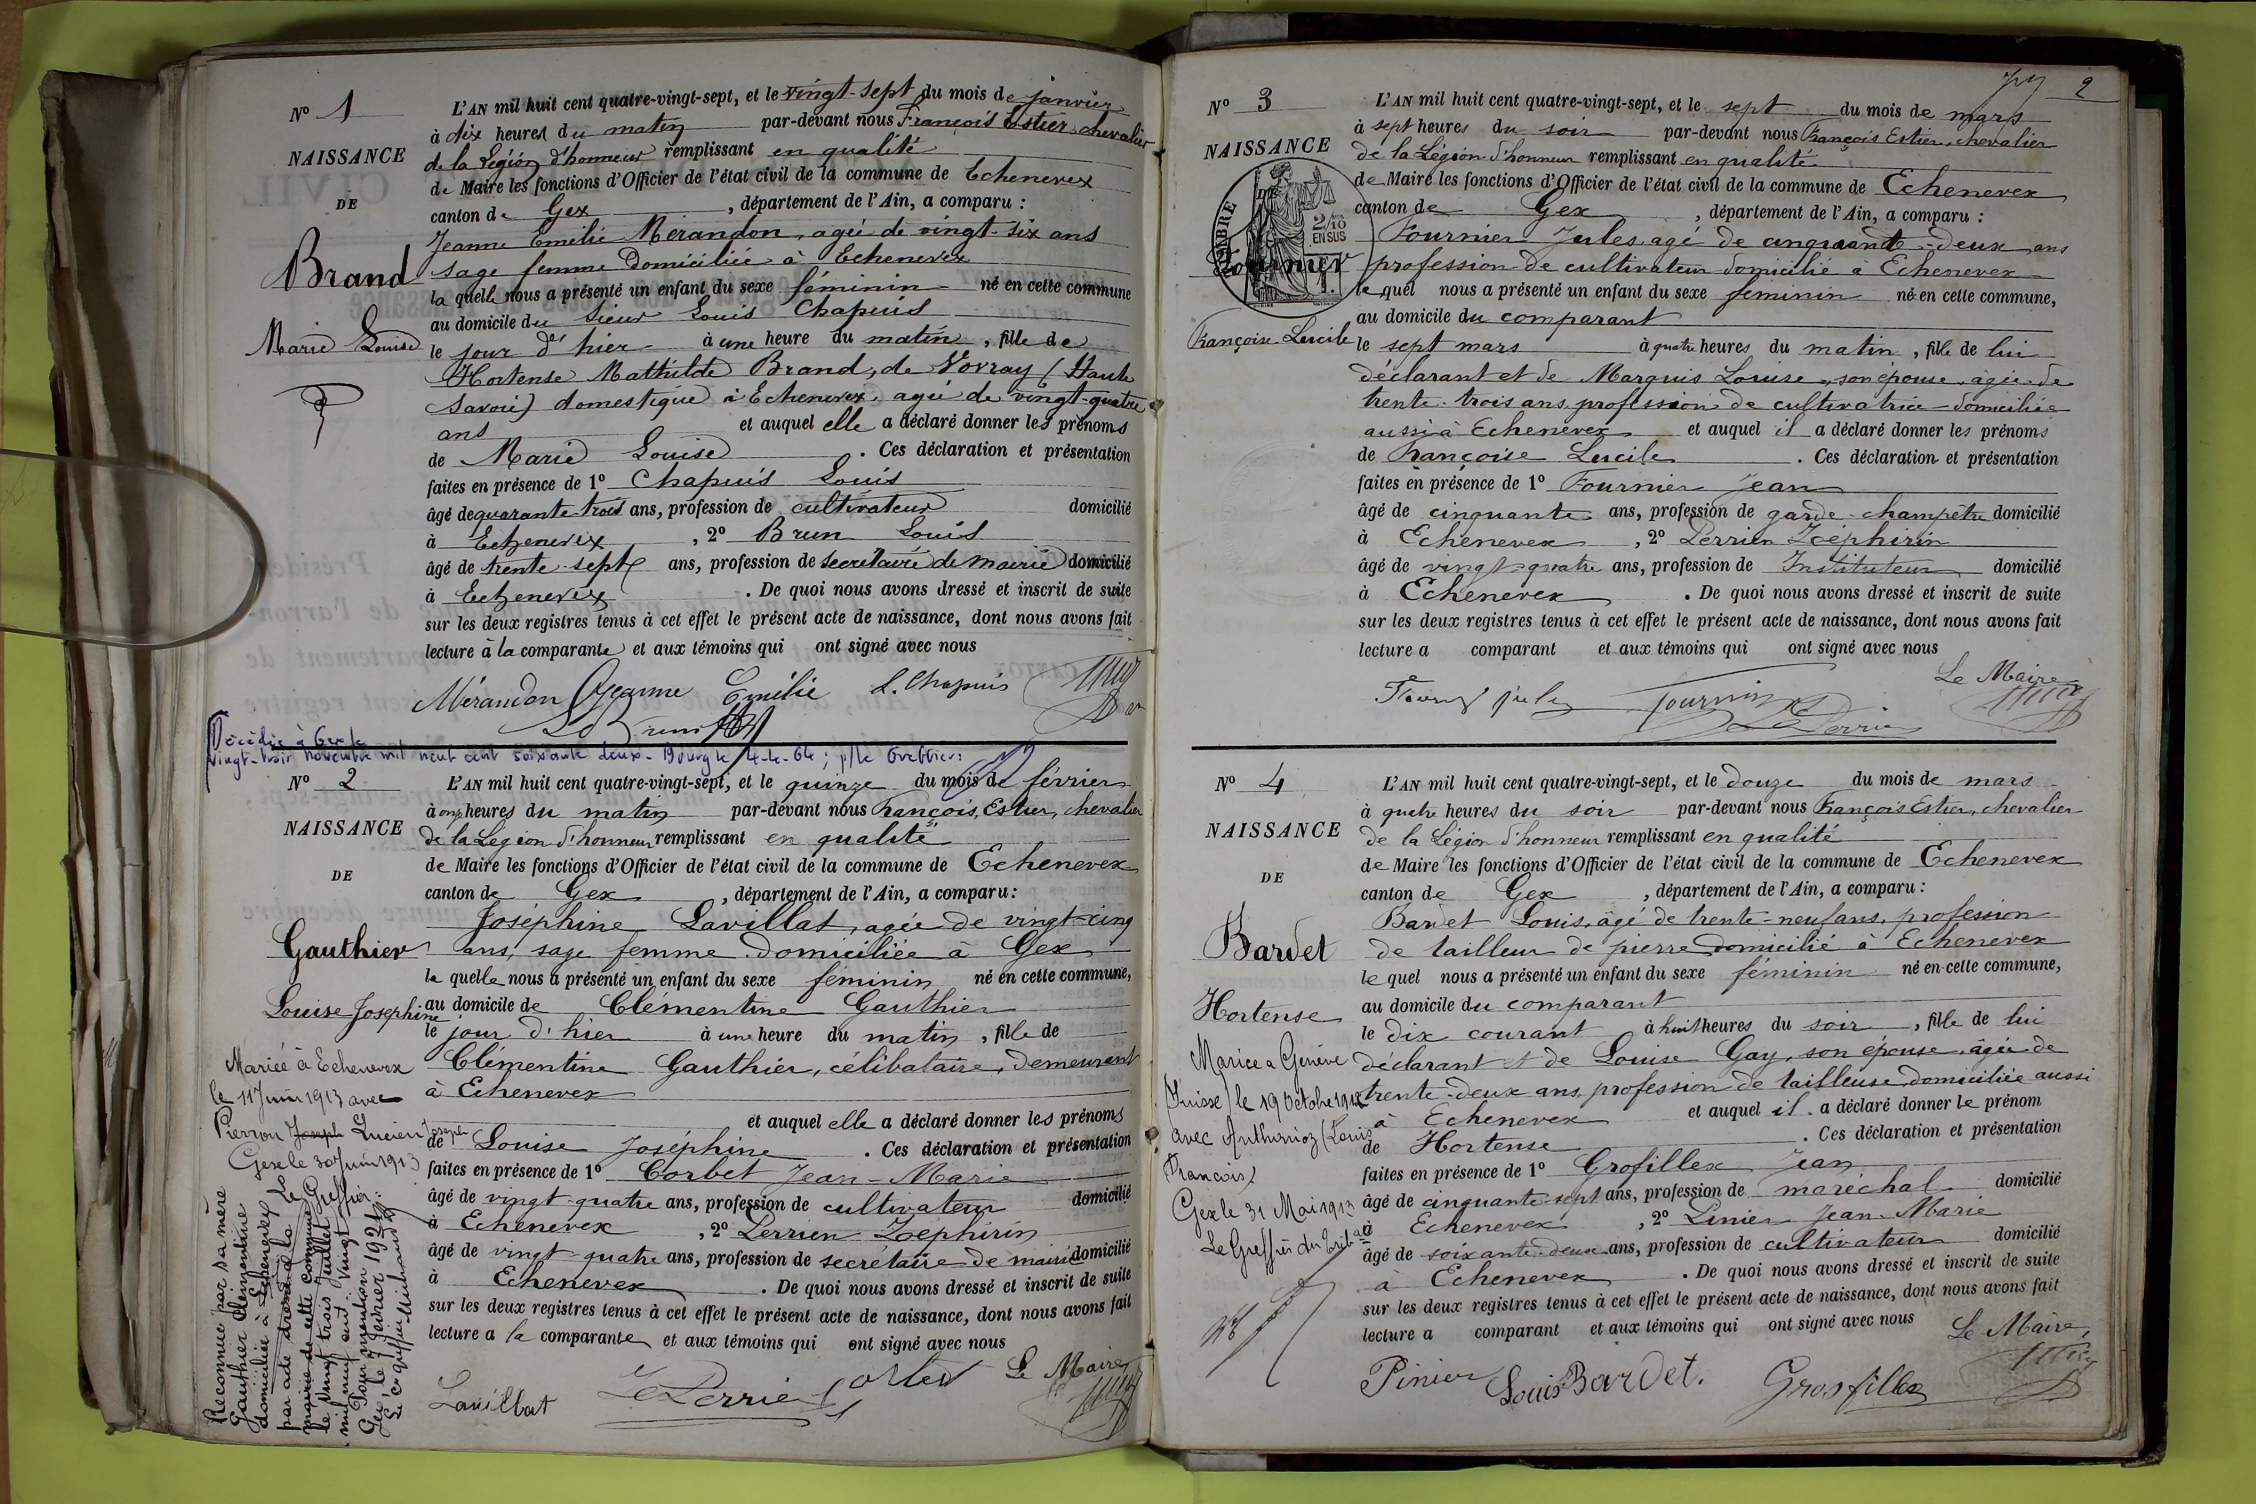 N° 1
NAISSANCE
DE
Brand
Marie Louise
L'AN mil huit cent quatre-vingt-sept, et le vingt-sept du mois de janvier
à dix heures du matin par-devant nous François Estier, chevalier
de la Légion d'honneur remplissant en qualité
de Maire les fonctions d'Officier de l'état civil de la commune de Echenevex
canton de Gex, département de l'Ain, a comparu :
Jeanne Emélie Mérandon, agée de vingt-six ans
sage femme domiciliée à Echenevex
la quelle nous a présenté un enfant du sexe féminin né en cette commune
au domicile du sieur Louis Chapuis
le jour d'hier à une heure du matin, fille de
Hortense Mathilde Brand, de Vovray (Haute
Savoie) domestique à Echenevex, agée de vingt-quatre
ans et auquel elle a déclaré donner les prénoms
de Marie Louise. Ces déclaration et présentation
faites en présence de 1° Chapuis Louis
âgé de quarante-trois ans, profession de cultivateur domicilié
à Echenevex, 2° Brun Louis
âgé de trente-sept ans, profession de secrétaire de mairie domicilié
à Echenevex. De quoi nous avons dressé et inscrit de suite
sur les deux registres tenus à cet effet le présent acte de naissance, dont nous avons fait
lecture à la comparante et aux témoins qui ont signé avec nous
Mérandon Jeanne Emélie L. Chapuis
Ls Brun
Décédée à Gex le
vingt-trois novembre mil neuf cent soixante deux. Bourg le 4-4-64 ; p/le Greffier :
N° 2
NAISSANCE
DE
Gauthier
Louise Josephine
L'AN mil huit cent quatre-vingt-sept, et le quinze du mois de février
à onze heures du matin par-devant nous François, Estier, chevalier
de la Légion d'honneur remplissant en qualité
de Maire les fonctions d'Officier de l'état civil de la commune de Echenevex
canton de Gex, département de l'Ain, a comparu :
Joséphine Lavillat, agée de vingt-cinq
ans, sage femme domiciliée à Gex
la quelle nous a présenté un enfant du sexe féminin né en cette commune,
au domicile de Clémentine Gauthier
le jour d'hier à une heure du matin, fille de
Clémentine Gauthier, célibataire, demeurant
à Echenevex
et auquel elle a déclaré donner les prénoms
de Louise Joséphine. Ces déclaration et présentation
faites en présence de 1° Corbet Jean-Marie
âgé de vingt-quatre ans, profession de cultivateur domicilié
à Echenevex, 2° Perrier Zéphirin
âgé de vingt-quatre ans, profession de secrétaire de mairie domicilié
à Echenevex. De quoi nous avons dressé et inscrit de suite
sur les deux registres tenus à cet effet le présent acte de naissance, dont nous avons fait
lecture a la comparante et aux témoins qui ont signé avec nous
Lavillat Perrier Corbet Le Maire
Mariée à Echenevex
le 11 Juin 1913 avec
Pierron Joseph Lucien Joseph
Gex le 30 Juin 1913
Le Greffier
Reconnue par sa mère
Gauthier Clémentine
domiciliée à Echenevex
par acte dressé à la
mairie de cette commune
le vingt trois Juillet
mil neuf cent vingt
Pour mention
Gex, le 7 Février 1921
Le Greffier
N° 3
NAISSANCE
DE
TIMBRE
2/10
EN SUS
Fournier
Françoise Lucile
2
L'AN mil huit cent quatre-vingt-sept, et le sept du mois de mars
à sept heures du soir par-devant nous François Estier, chevalier
de la Légion d'honneur remplissant en qualité
de Maire les fonctions d'Officier de l'état civil de la commune de Echenevex
canton de Gex, département de l'Ain, a comparu :
Fournier Jules, agé de cinquante-deux ans
profession de cultivateur domicilié à Echenevex
le quel nous a présenté un enfant du sexe féminin né en cette commune,
au domicile du comparant
le sept mars à quatre heures du matin, fille de lui
déclarant et de Marquis Louise, son épouse, âgée de
trente-trois ans, profession de cultivatrice domiciliée
aussi à Echenevex et auquel il a déclaré donner les prénoms
de Françoise Lucile. Ces déclaration et présentation
faites en présence de 1° Fournier Jean
âgé de cinquante ans, profession de garde-champêtre domicilié
à Echenevex, 2° Perrier Zéphirin
âgé de vingt-quatre ans, profession de Instituteur domicilié
à Echenevex. De quoi nous avons dressé et inscrit de suite
sur les deux registres tenus à cet effet le présent acte de naissance, dont nous avons fait
lecture a comparant et aux témoins qui ont signé avec nous
Le Maire
Fournier Perrier
N° 4
NAISSANCE
DE
Bardet
Hortense
L'AN mil huit cent quatre-vingt-sept, et le douze du mois de mars
à quatre heures du soir par-devant nous François Estier, chevalier
de la Légion d'honneur remplissant en qualité
de Maire les fonctions d'Officier de l'état civil de la commune de Echenevex
canton de Gex, département de l'Ain, a comparu :
Bardet Louis, âgé de trente-neuf ans, profession
de tailleur de pierre domicilié à Echenevex
le quel nous a présenté un enfant du sexe féminin né en cette commune,
au domicile du comparant
le dix courant à huit heures du soir, fille de lui
déclarant et de Louise Gay, son épouse, âgée de
trente-deux ans, profession de tailleuse domiciliée aussi
à Echenevex et auquel il a déclaré donner le prénom
de Hortense. Ces déclaration et présentation
faites en présence de 1° Grosfillex Jean
âgé de cinquante-sept ans, profession de maréchal domicilié
à Echenevex, 2° Pinier Jean-Marie
âgé de soixante-deux ans, profession de cultivateur domicilié
à Echenevex. De quoi nous avons dressé et inscrit de suite
sur les deux registres tenus à cet effet le présent acte de naissance, dont nous avons fait
lecture a comparant et aux témoins qui ont signé avec nous
Le Maire,
Pinier Louis Bardet. Grosfillex
Mariée à Genève
(Suisse) le 19 Octobre
avec Anthonioz (Louis
François)
Gex le 31 Mai 1913
Le Greffier du Tribal